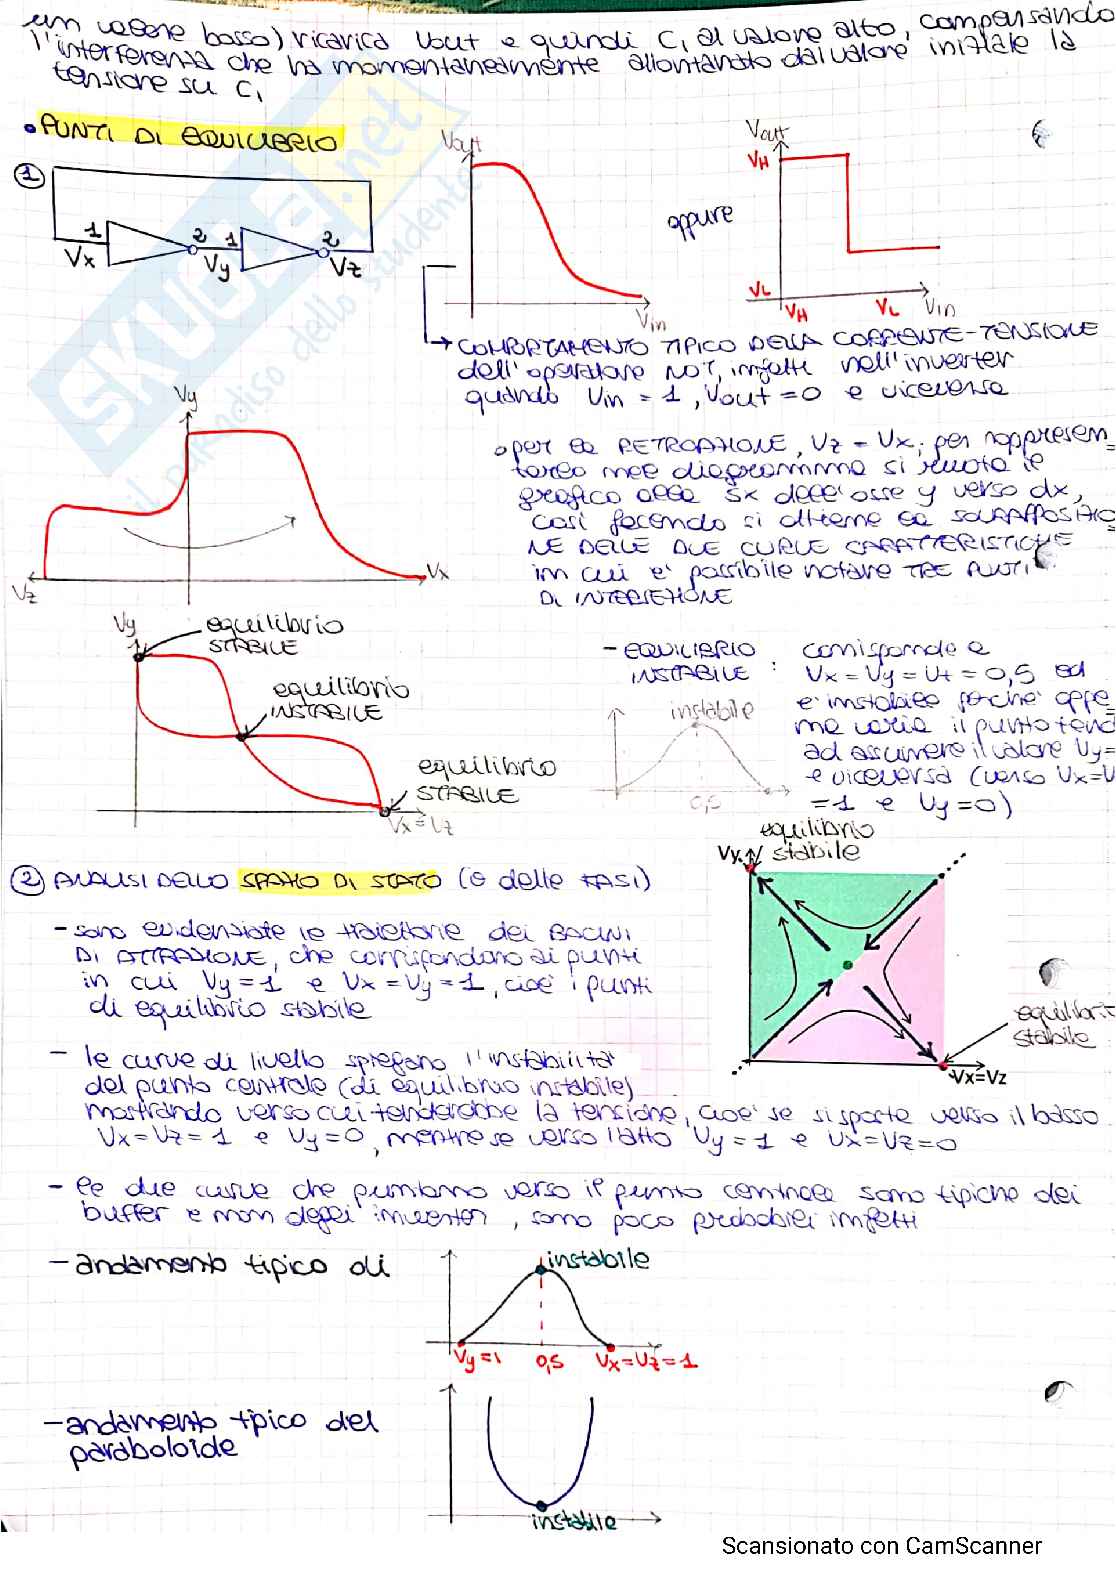 un valore basso) ricarica Vout e quindi C₁ al valore alto, compensando
l'interferenza che ha momentaneamente allontanato dal valore iniziale la
tensione su C₁
• PUNTI DI EQUILIBRIO
1
1 2 1 2
Vx Vy Vz
Vout
Vin
oppure
Vout
VH
VL
VH VL Vin
COMPORTAMENTO TIPICO DELLA CORRENTE-TENSIONE
dell'operatore NOT, infatti nell'inverter
quando Vin = 1, Vout = 0 e viceversa
Vy
Vx
Vz
per la RETROAZIONE, Vz = Vx; per rappresen
tarlo nel diagramma si ruota il
grafico alla sx dell'asse y verso dx,
così facendo si ottiene la SOVRAPPOSIZIO
NE DELLE DUE CURVE CARATTERISTICHE
in cui e' possibile notare TRE PUNTI
DI INTERSEZIONE
Vy
1
equilibrio
STABILE
equilibrio
INSTABILE
equilibrio
STABILE
Vx=Vz
- EQUILIBRIO
INSTABILE :
corrisponde a
Vx = Vy = Vt = 0,5 ed
e' instabile perche' appe
na varia il punto tend
ad assumere il valore Vy=
e viceversa (verso Vx=V
=1 e Vy=0)
instabile
0,5
2 ANALISI DELLO SPAZIO DI STATO (o delle FASI)
- sono evidenziate le traiettorie dei BACINI
DI ATTRAZIONE, che corrispondono ai punti
in cui Vy=1 e Vx=Vy=1, cioe' i punti
di equilibrio stabile
equilibrio
stabile
Vy
equilibri
stabile
Vx=Vz
- le curve di livello spiegano l'instabilita'
del punto centrale (di equilibrio instabile)
mostrando verso cui tenderebbe la tensione, cioe' se si sposta verso il basso
Vx=Vz=1 e Vy=0, mentre se verso l'alto Vy=1 e Vx=Vz=0
- le due curve che puntano verso il punto centrale sono tipiche dei
buffer e non degli inverter, sono poco probabili infatti
- andamento tipico di
instabile
Vy=1 0,5 Vx=Vz=1
- andamento tipico del
paraboloide
instabile
SKUOLA.net
il paradiso dello studente
Scansionato con CamScanner